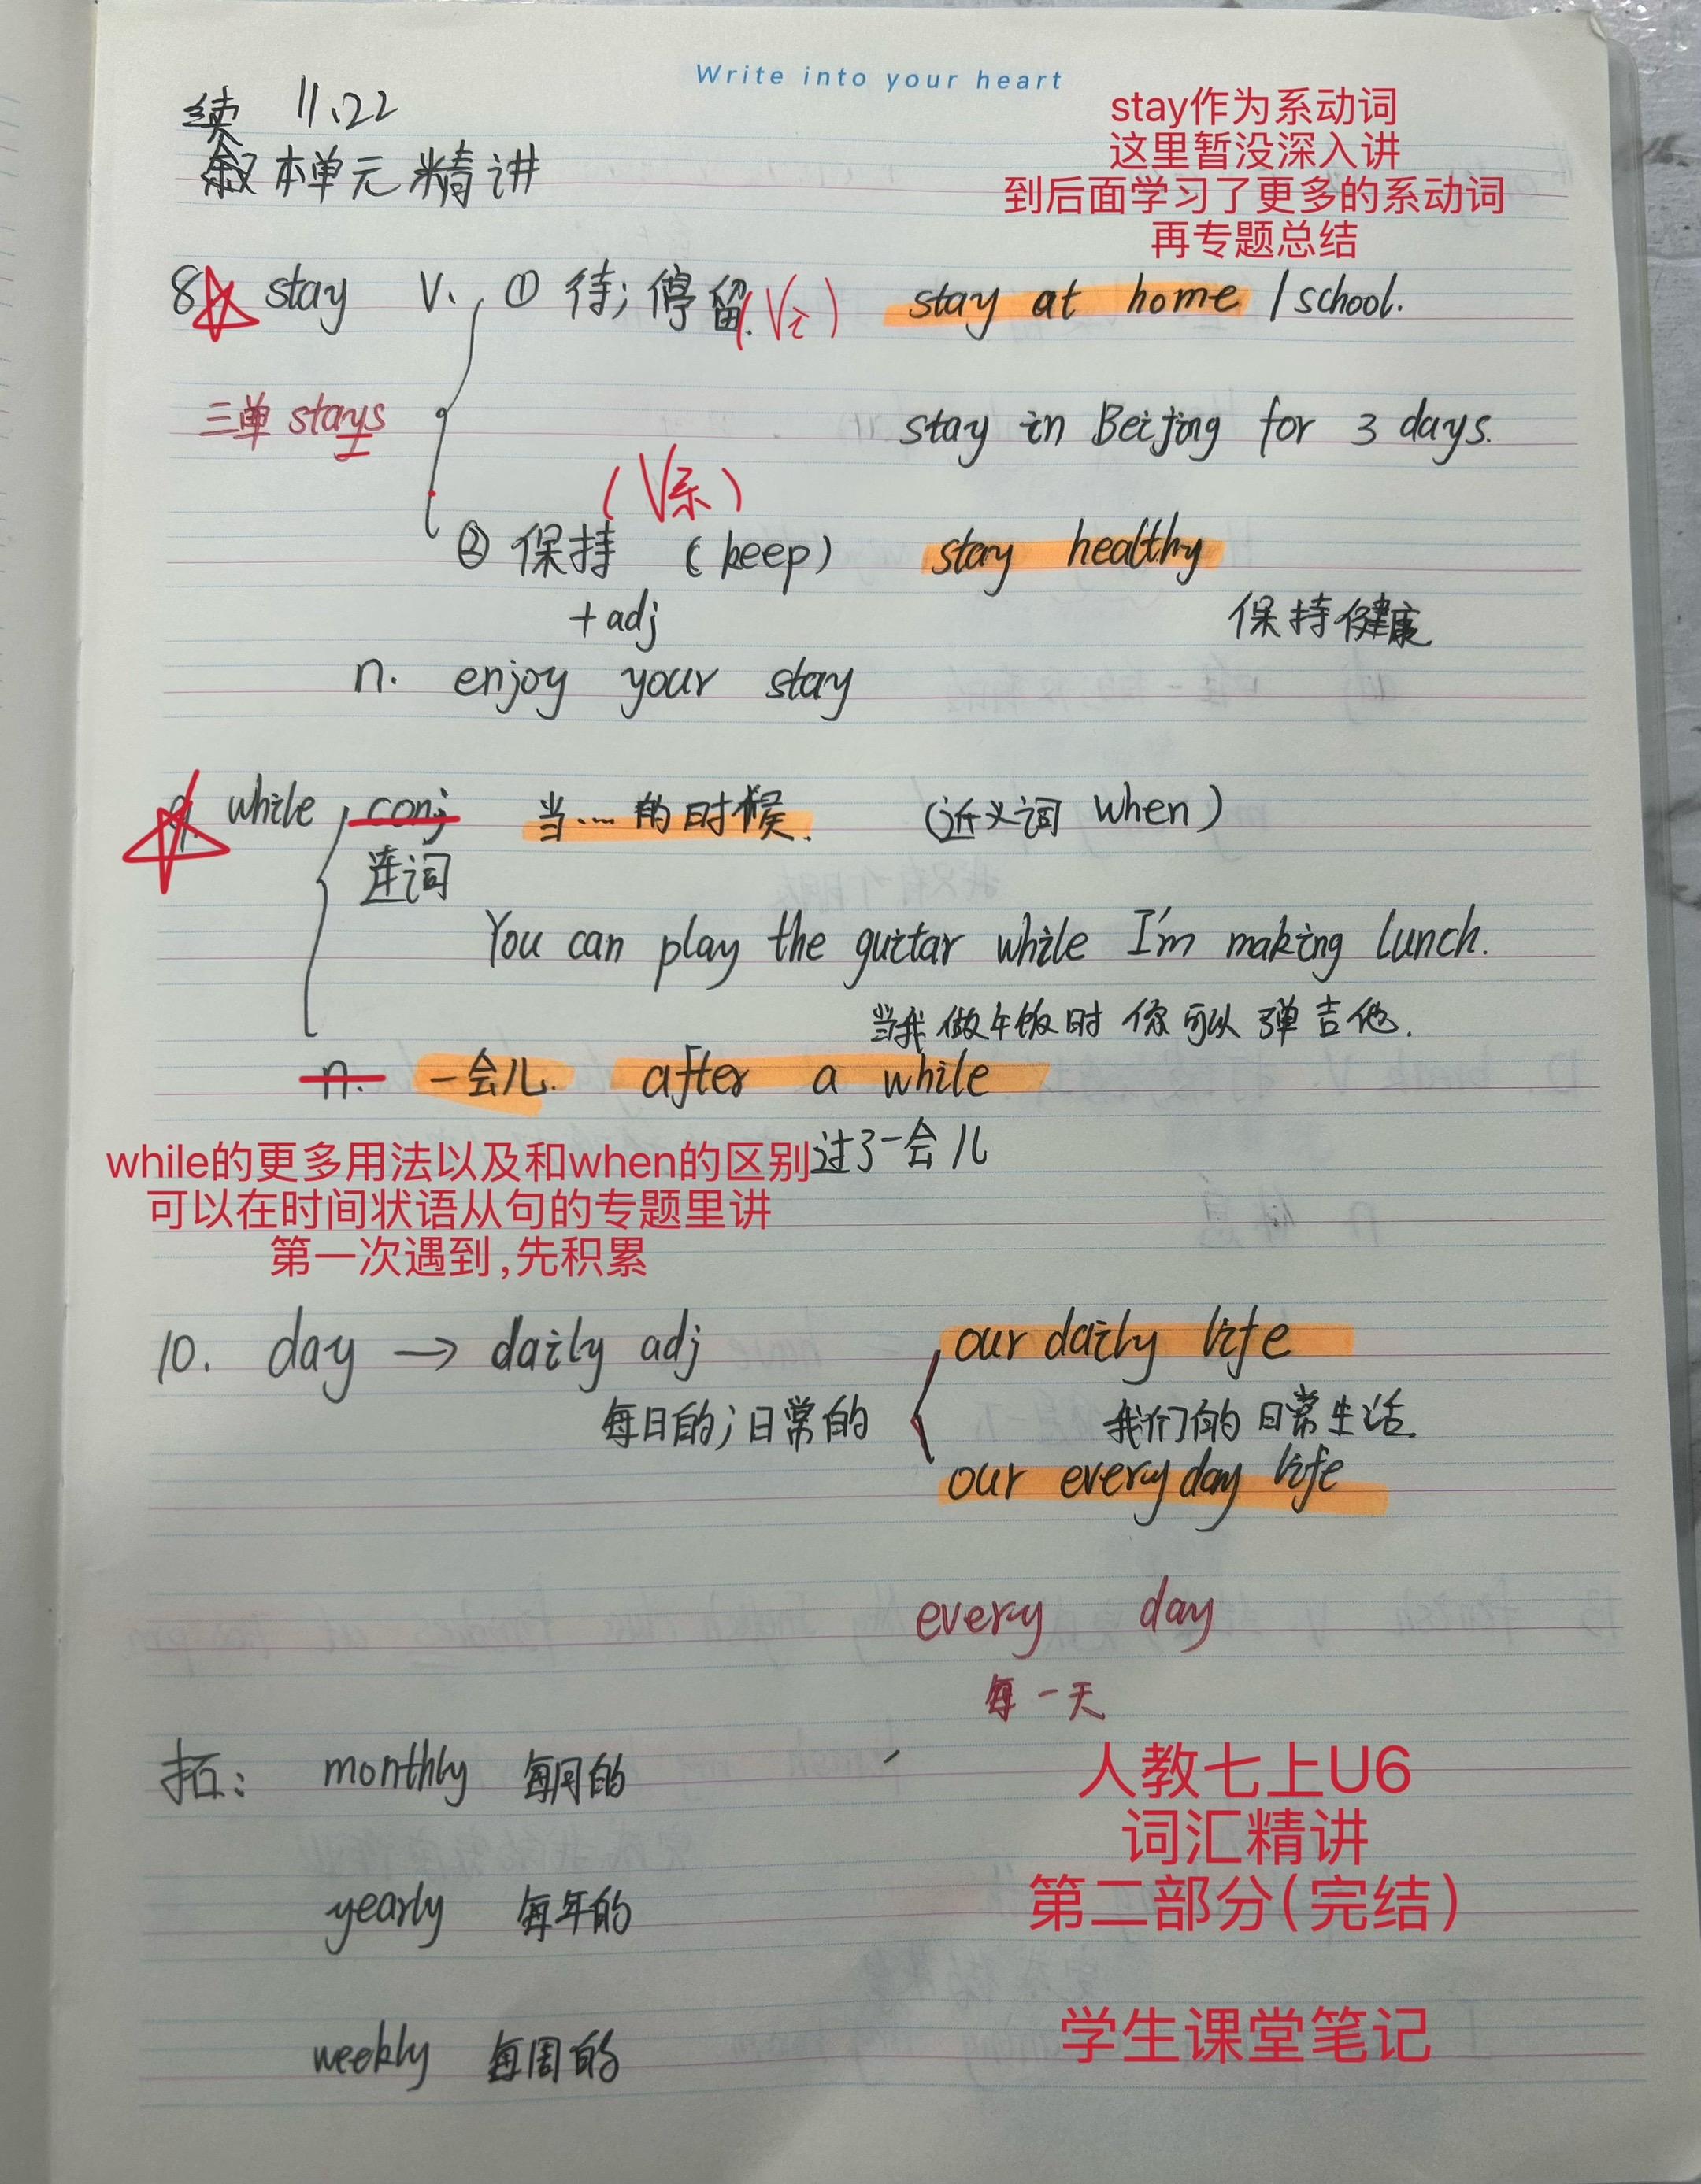 Write into your heart
续 11.22
叙本单元精讲
stay作为系动词
这里暂没深入讲
到后面学习了更多的系动词
再专题总结
8 stay v. ① 待;停留.(Vi) stay at home / school.
三单 stays
stay in Beijing for 3 days.
(V系)
② 保持 (keep) stay healthy
+adj 保持健康
n. enjoy your stay
9. while conj 当....的时候. (近义词 when)
连词
You can play the guitar while I'm making lunch.
当我做午饭时 你可以弹吉他.
n. 一会儿. after a while
过了一会儿
while的更多用法以及和when的区别
可以在时间状语从句的专题里讲
第一次遇到,先积累
10. day → daily adj our daily life
每日的;日常的 我们的日常生活.
our everyday life
every day
每一天
拓: monthly 每月的
yearly 每年的
weekly 每周的
人教七上U6
词汇精讲
第二部分(完结)
学生课堂笔记